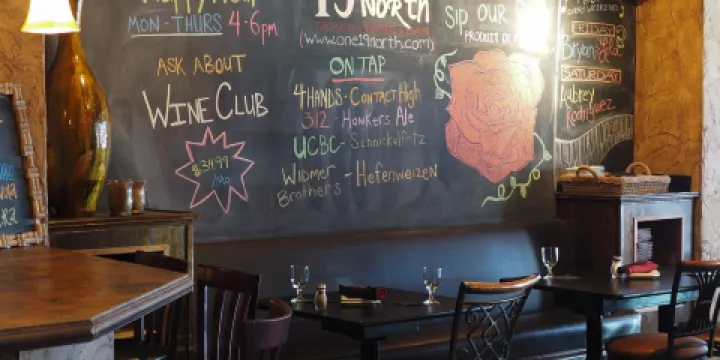 Happy Hour
MON-THURS 4-6pm
ASK ABOUT
WINE CLUB
$34.99
/Mo.
19 NORTH
(www.one19north.com)
ON TAP
4HANDS - CONTACT High
312 - Honkers Ale
UCBC - Schnickelfritz
WIDMER Brothers - Hefeweizen
SIP OUR
PRODUCT OF
FRIDAY
SATURDAY
Aubrey
Rodriguez